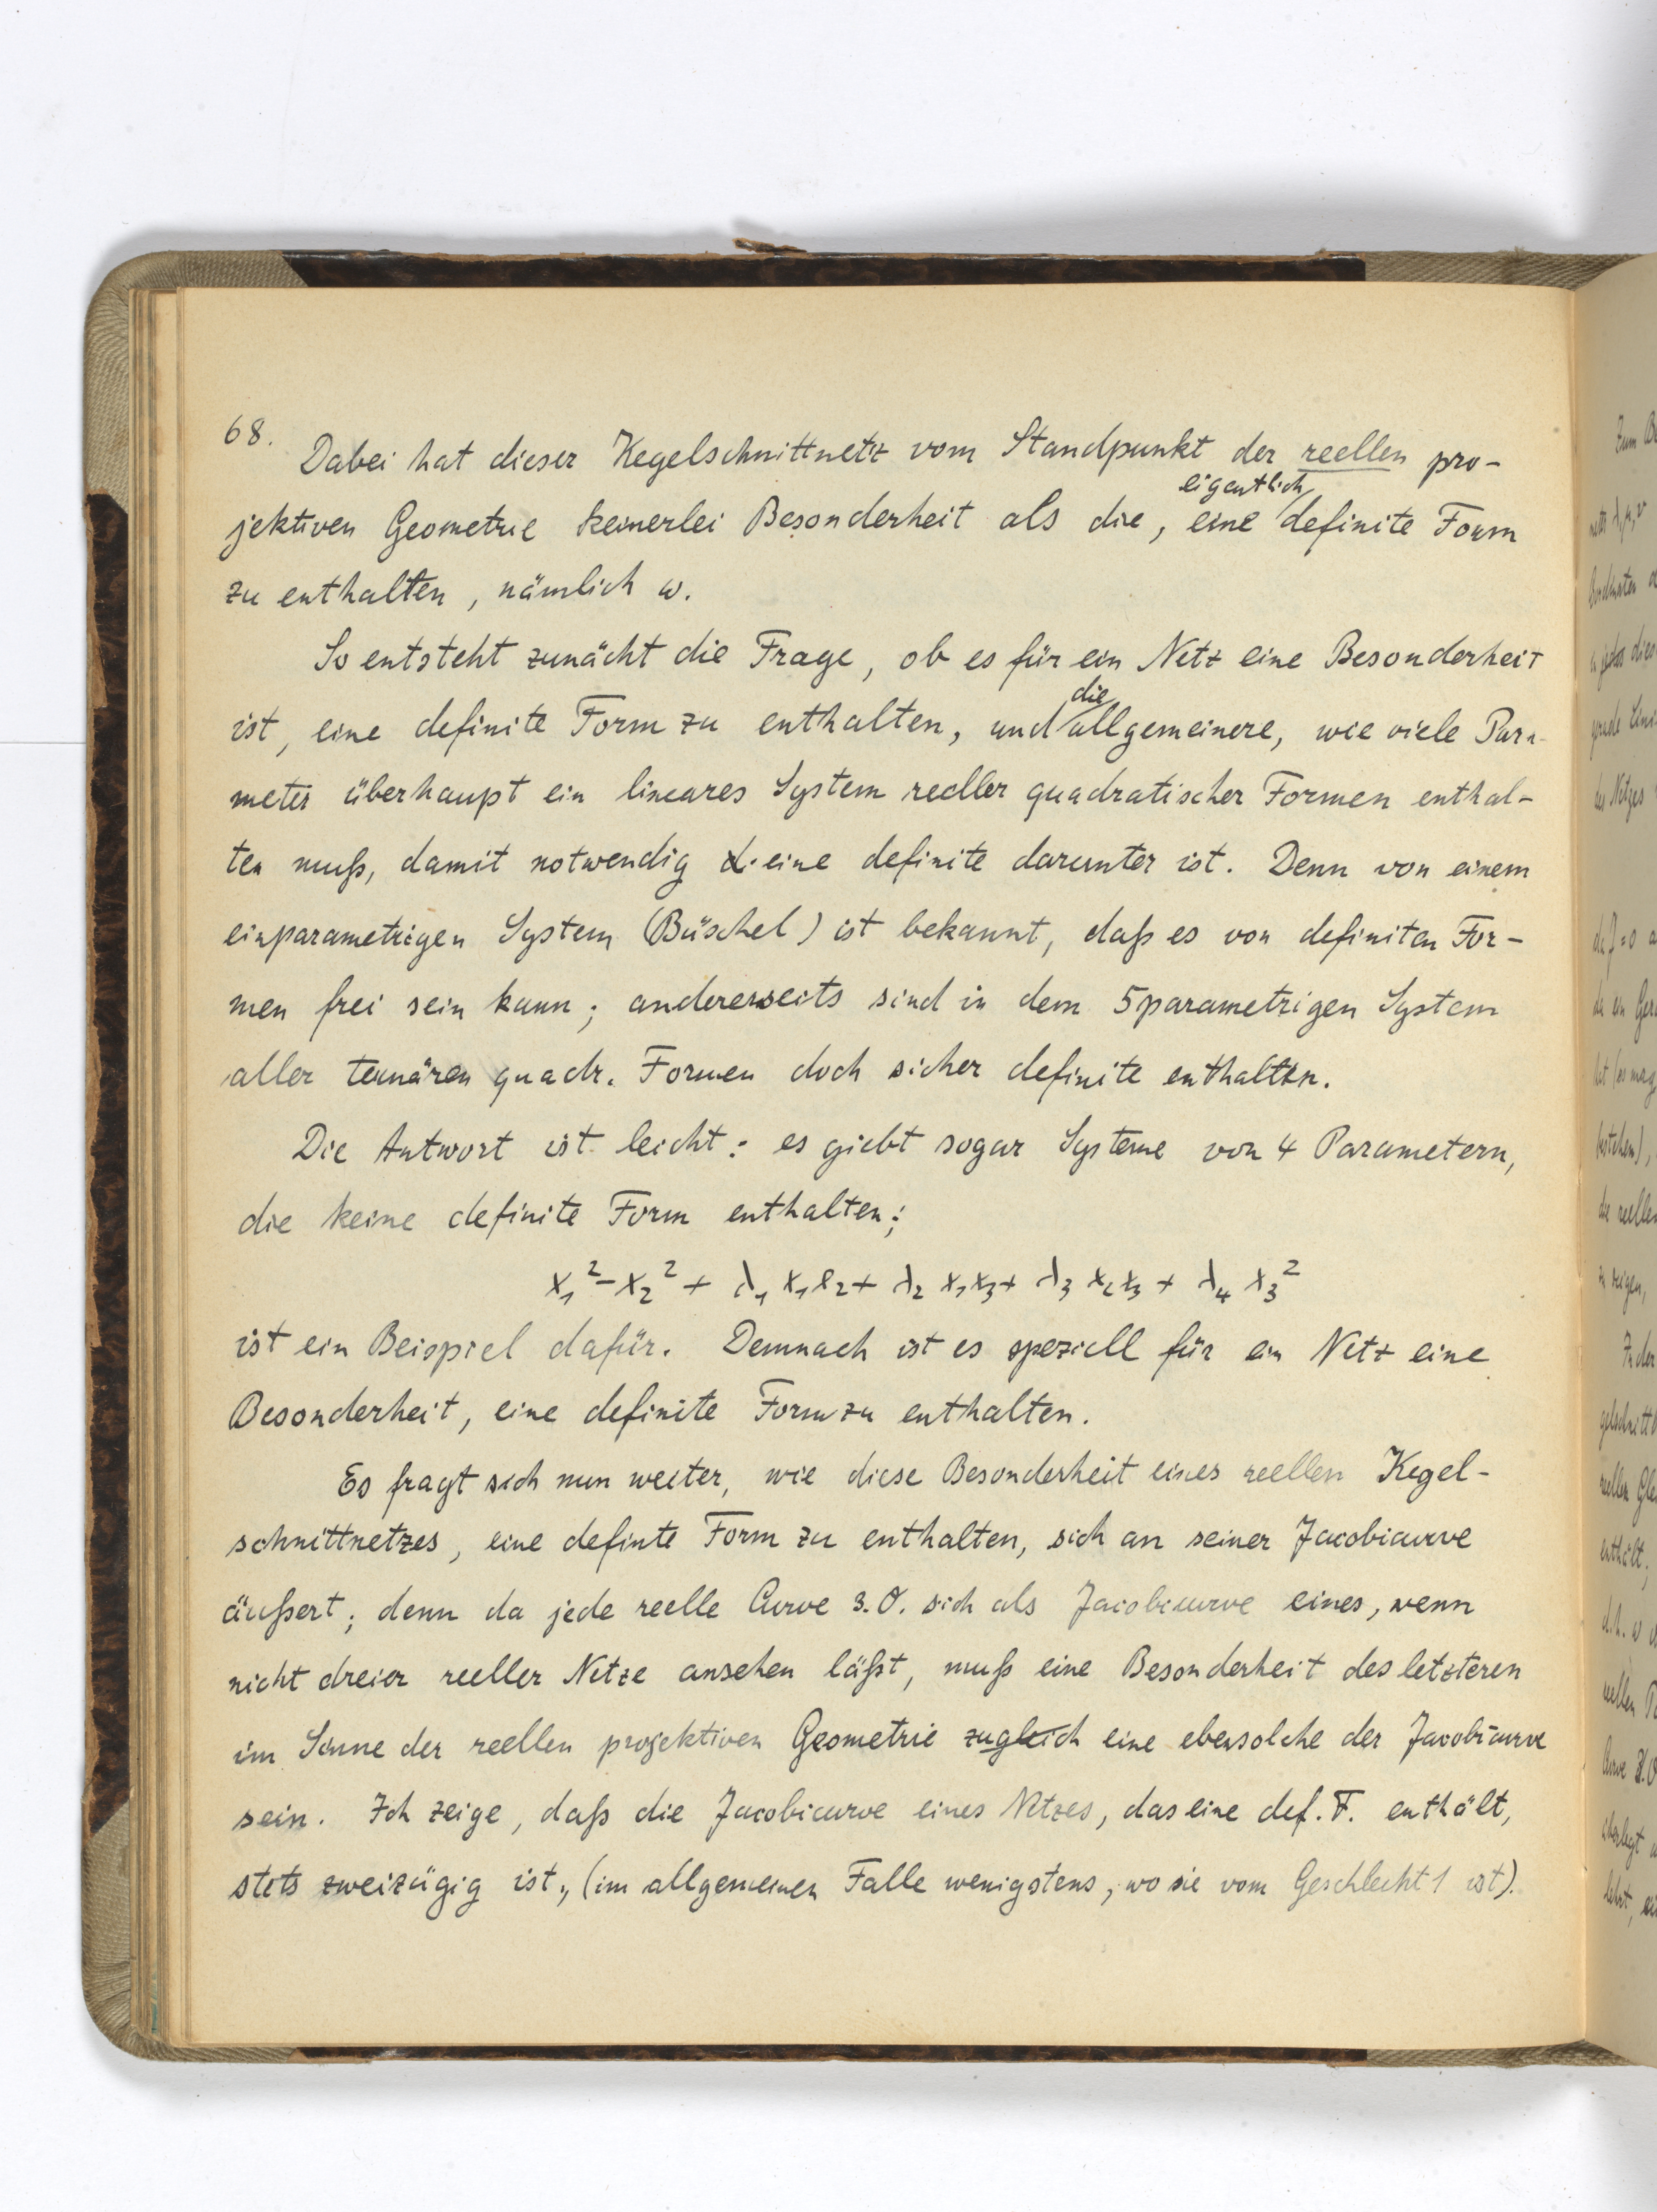 68.
Dabei hat dieser Kegelschnittnetz vom Standpunkt der reellen pro-
jektiven Geometrie keinerlei Besonderheit als die, eine eigentlich definite Form
zu enthalten, nämlich ω.
So entsteht zunächt die Frage, ob es für ein Netz eine Besonderheit
ist, eine definite Form zu enthalten, und die allgemeinere, wie viele Para-
meter überhaupt ein lineares System reeller quadratischer Formen enthal-
ten muß, damit notwendig eine definite darunter ist. Denn von einem
einparametrigen System (Büschel) ist bekannt, daß es von definiten For-
men frei sein kann; andererseits sind in dem 5parametrigen System
aller ternären quadr. Formen doch sicher definite enthalten.
Die Antwort ist leicht: es giebt sogar Systeme von 4 Parametern,
die keine definite Form enthalten;
x₁² - x₂² + λ₁ x₁x₂ + λ₂ x₁x₃ + λ₃ x₂x₃ + λ₄ x₃²
ist ein Beispiel dafür. Demnach ist es speziell für ein Netz eine
Besonderheit, eine definite Form zu enthalten.
Es fragt sich nun weiter, wie diese Besonderheit eines reellen Kegel-
schnittnetzes, eine definte Form zu enthalten, sich an seiner Jacobicurve
äußert; denn da jede reelle Curve 3. O. sich als Jacobicurve eines, wenn
nicht dreier reeller Netze ansehen läßt, muß eine Besonderheit des letzteren
im Sinne der reellen projektiven Geometrie zugleich eine ebensolche der Jacobicurve
sein. Ich zeige, daß die Jacobicurve eines Netzes, das eine def. F. enthält,
stets zweizügig ist, (im allgemeinen Falle wenigstens, wo sie vom Geschlecht 1 ist).